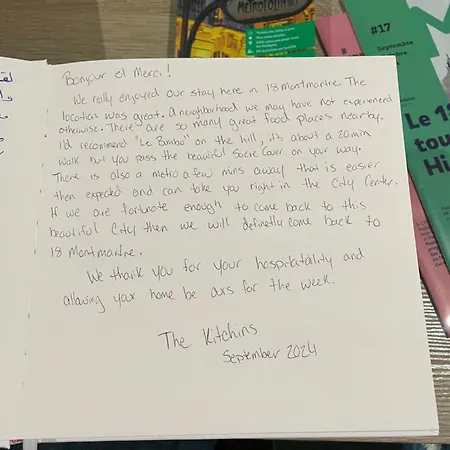 METROPOLITAIN
#17
Septembre
Le 18
tou
Hi
Bonjour et Merci!
We really enjoyed our stay here in 18 Montmartre. The
location was great. A neighborhood we may have not experienced
otherwise. There are so many great food places nearby.
I'd recommend "Le Bimbo" on the hill, it's about a 20 min
walk but you pass the beautiful Sacre Couer on your way.
There is also a metro a few mins away that is easier
then expected and can take you right in the City Center.
If we are fortunate enough to come back to this
beautiful City then we will definetly come back to
18 Montmartre.
We thank you for your hospitatality and
allowing your home be ours for the week.
The Kitchins
September 2024